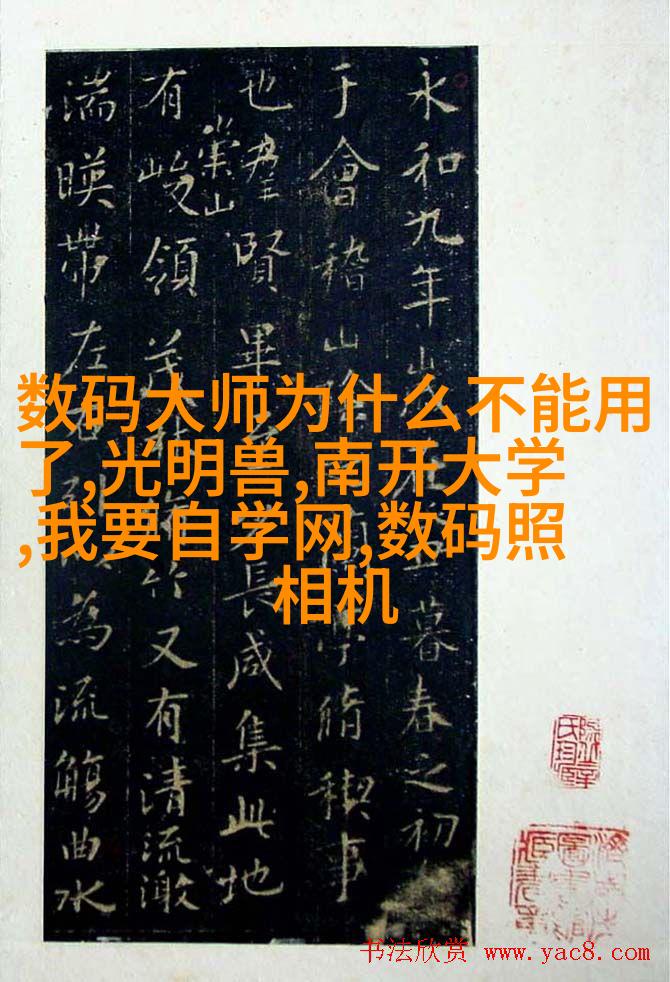 数码大师为什么不能用
了,光明兽,南开大学
,我要自学网,数码照
相机
永和九年在暮春之初
于會稽山亭脩稧事
也羣賢畢長咸集此地
有崇山峻領茂林竹又有清流激
湍暎帶左右為流觴曲水
书法欣赏 www.yac8.com